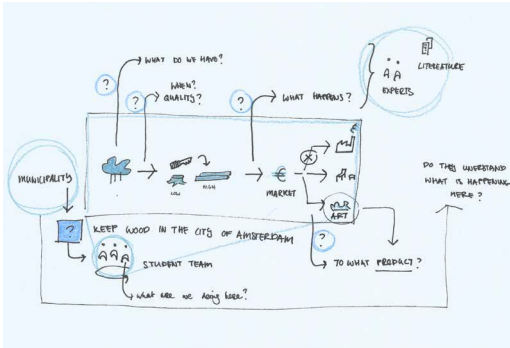 ? → WHAT DO WE HAVE?
WHEN?
? QUALITY?
? WHAT HAPPENS?
LITEREATURE
EXPERTS
MUNICIPALITY
LOW
HIGH
€
MARKET
ART
DO THEY UNERSTAND
WHAT IS HAPPENING
HERE?
?
KEEP WOOD IN THE CITY OF AMSTERDAM
STUDENT TEAM
what are we doing here?
?
TO WHAT PRODUCT?